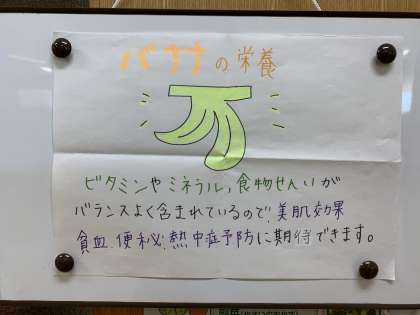 バナナの栄養
ビタミンやミネラル、食物せんいが
バランスよく含まれているので、美肌効果
貧血、便秘、熱中症予防に期待できます。